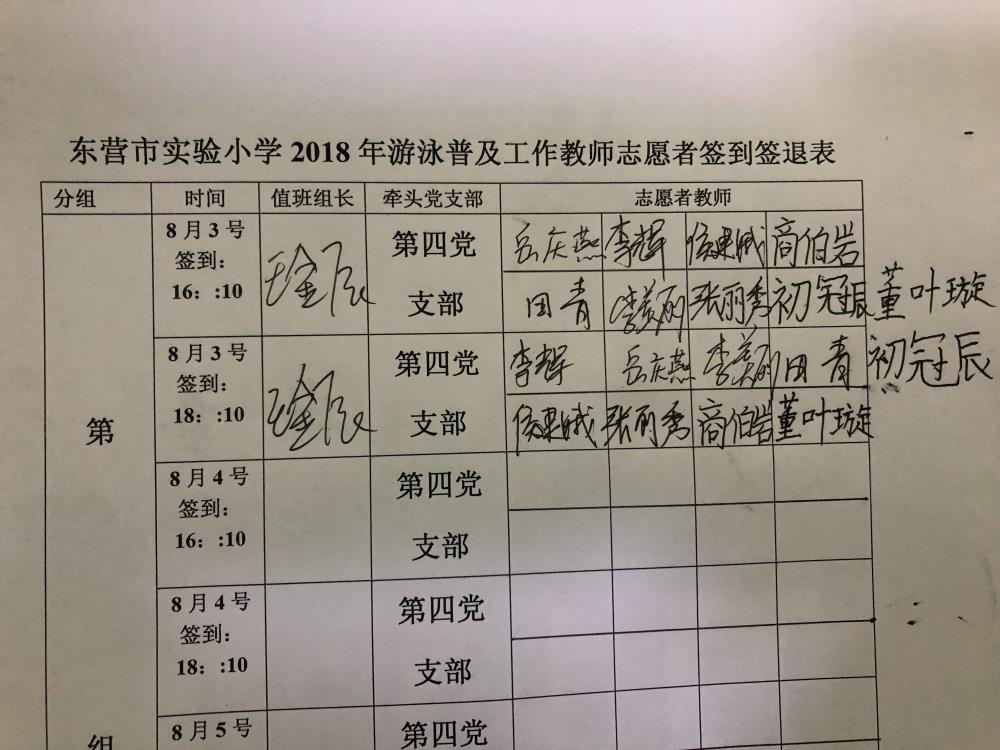 东营市实验小学 2018 年游泳普及工作教师志愿者签到签退表
分组 时间 值班组长 牵头党支部 志愿者教师
8 月 3 号 第四党 岳庆燕 李辉 商伯岩
签到:
16: :10 支部 田青 李美丽 张丽秀 初冠振 董叶璇
8 月 3 号 第四党 李辉 岳庆燕 李美丽 田青 初冠辰
签到:
18: :10 支部 张丽秀 商伯岩 董叶璇
第
8 月 4 号 第四党
签到:
16: :10 支部
8 月 4 号 第四党
签到:
18: :10 支部
8 月 5 号 第四党
组